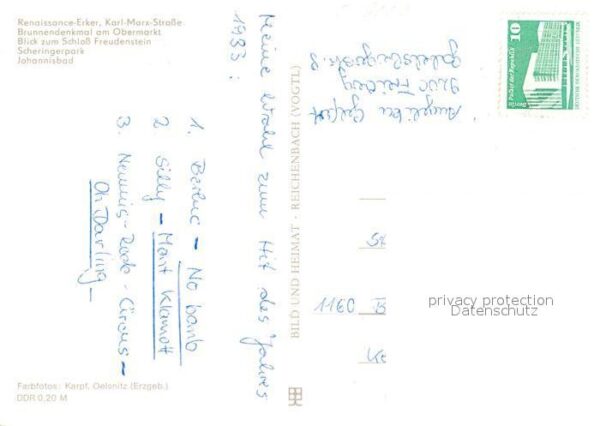 Renaissance-Erker, Karl-Marx-Straße
Brunnendenkmal am Obermarkt
Blick zum Schloß Freudenstein
Scheringerpark
Johannisbad
Meine Wahl zum Hit des Jahres
1983:
1. Berluc - No bomb
2 Silly - Mont Klamott
3. Neumis - Rock - Circus -
Oh Darling
Farbfotos: Karpf, Oelsnitz (Erzgeb.)
DDR 0,20 M
BILD UND HEIMAT · REICHENBACH (VOGTL)
9200 Freiberg
10
Palast der Republik
Berlin
1160 B
privacy protection
Datenschutz